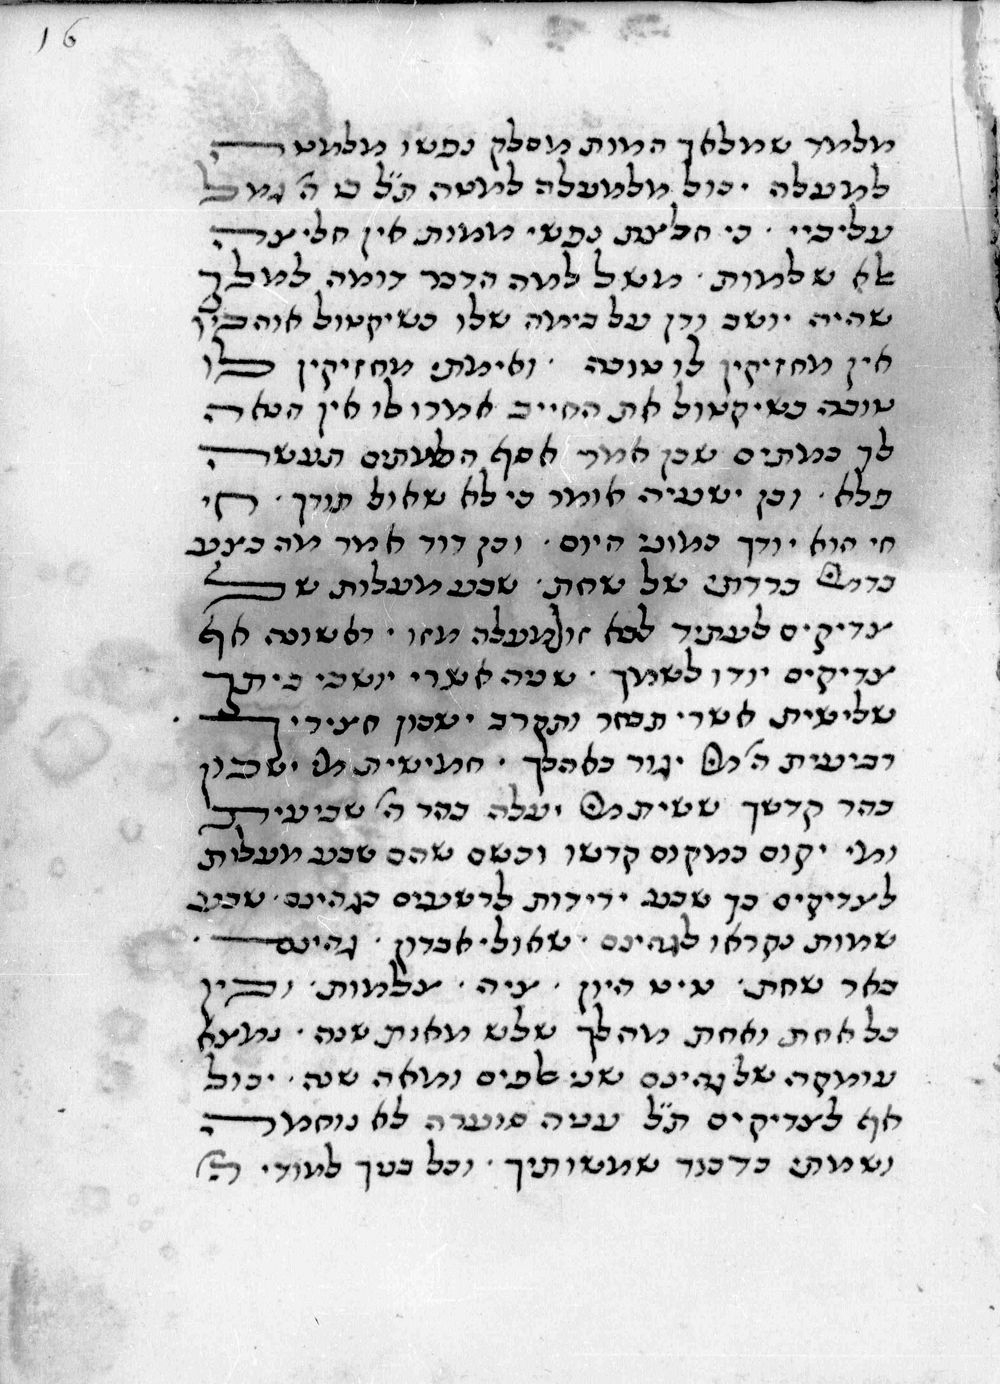 16
מלמד שמלאך המות מסלק נפשו מלמטה
למעלה יכול מלמעלה למטה ת״ל כי ה׳ גמל
עליכיי · כי חלצת נפשי ממות אין חליצה
אלא שלמות · משל למה הדבר דומה למלך
שהיה יושב ודן על בימה שלו כשיקטול אוהבין
אין מחזיקין לו טובה · ואימתי מחזיקין לו
טובה כשיקטול את החייב אמרו לו אין הנאה
לך במתים שכן אמר אסף הלמתים תעשה
פלא · וכן ישעיה אומר כי לא שאול תודך · חי
חי הוא יודך כמוני היום · וכן דוד אמר מה בצע
בדמי ברדתי של שחת · שבע מעלות של
צדיקים לעתיד לבא זו למעלה מזו · ראשונה אך
צדיקים יודו לשמך · שניה אשרי יושבי ביתך
שלישית אשרי תבחר ותקרב ישכון חציריך ·
רביעית ה׳ מי יגור באהלך · חמישית מי ישכון
בהר קדשך ששית מי יעלה בהר ה׳ שביעית
ומי יקום במקום קדשו וכשם שהם שבע מעלות
לצדיקים כך שבע ירידות לרשעים בגהינם · שבע
שמות נקראו לגהינם · שאול · אבדון · גהינם ·
באר שחת · טיט היון · ציה · צלמות · ובין
כל אחת ואחת מהלך שלש מאות שנה · נמצא
עומקה של גהינם שני אלפים ומאה שנה · יכול
אף לצדיקים ת״ל עניה סוערה לא נוחמה
ושמתי כדכוד שמשותיך · וכל בניך למודי ה׳